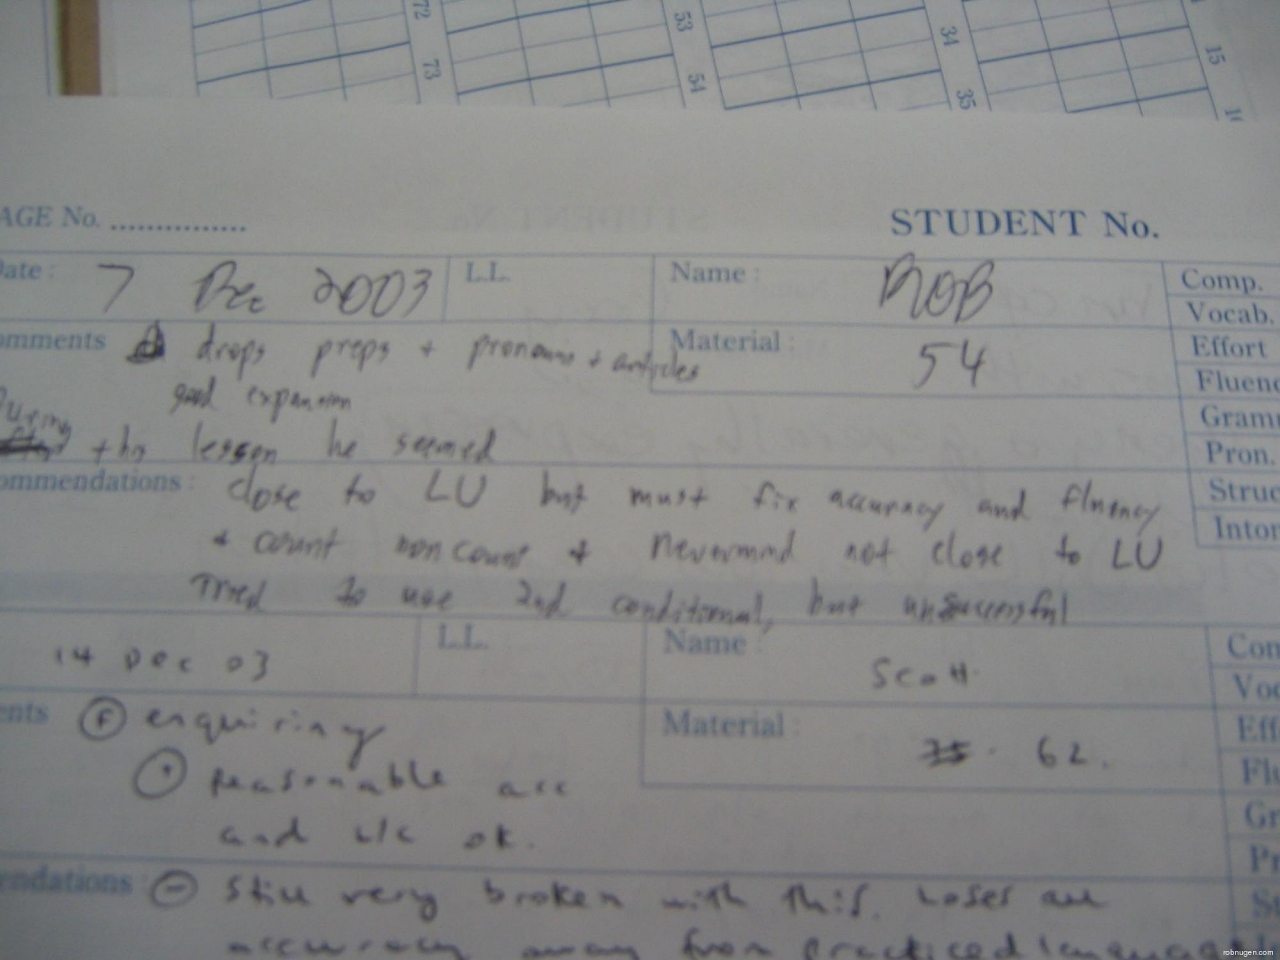 72 53 34 15
73 54 35
AGE No. ............... STUDENT No.
ate : 7 Dec 2003 L.L. Name : ROB Comp.
Vocab.
omments drops preps + pronouns + articles Material : 54 Effort
good expansion Fluenc
During this lesson he seemed Gram
Pron.
ommendations : close to LU but must fix accuracy and fluency Struc
+ count noncount + Nevermind not close to LU Inton
Tried to use 2nd conditional, but unsuccessful
14 Dec 03 L.L. Name : Scott Com
Voc
ents F enquiring Material : 62. Eff
+ reasonable acc Flu
and u/c ok. Gr
Pr
endations : - Still very broken with this. Loses all St
accuracy away from practiced language
robnugen.com